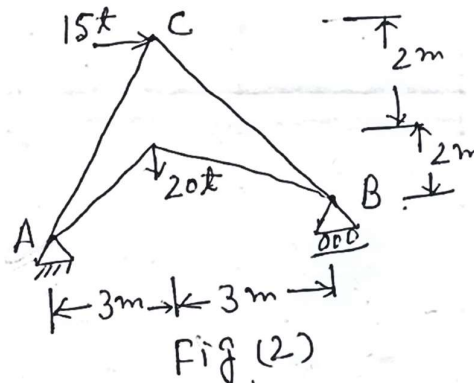 15t C
2m
2m
20t
B
A
3m 3m
Fig (2)